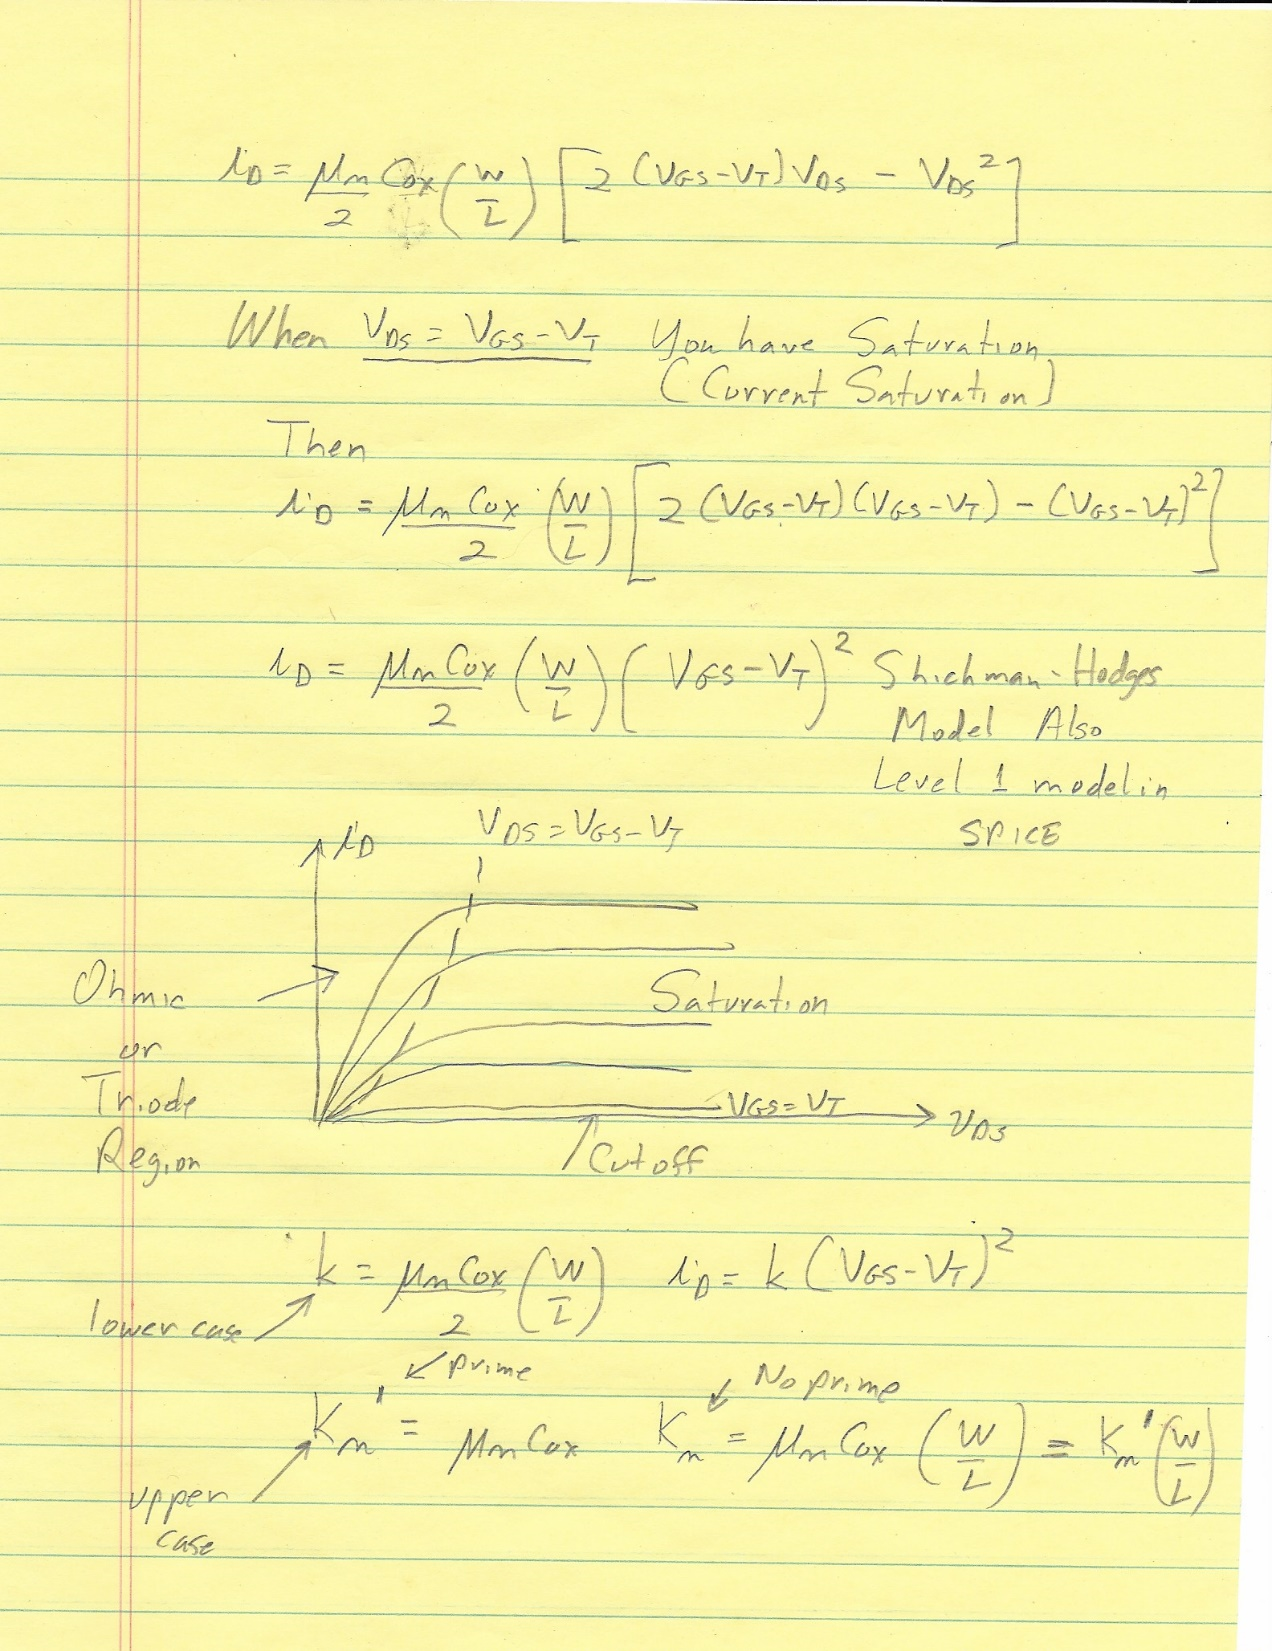 iD = μn Cox/2 (W/L) [2 (VGS-VT) VDS - VDS²]
When VDS = VGS-VT You have Saturation
(Current Saturation)
Then
iD = μn Cox/2 (W/L) [2 (VGS-VT)(VGS-VT) - (VGS-VT)²]
iD = μn Cox/2 (W/L) (VGS-VT)² Shichman-Hodges
Model Also
Level 1 model in
SPICE
VDS = VGS-VT
iD
Ohmic
or
Triode
Region
Saturation
VGS = VT
vDS
Cutoff
k = μn Cox/2 (W/L) iD = k (VGS-VT)²
lower case
prime
No prime
Kn' = μn Cox Kn = μn Cox (W/L) = Kn' (W/L)
upper
case